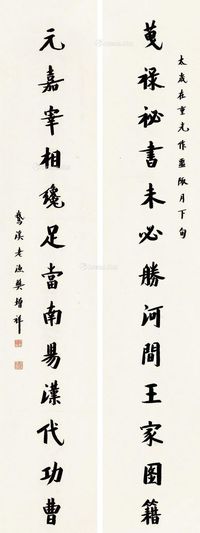 太歲在重光作噩陬月下旬
祿祕書未必勝河間王家圖籍
元嘉宰相纔足當南昜漢代功曹
溪老漁樊增祥